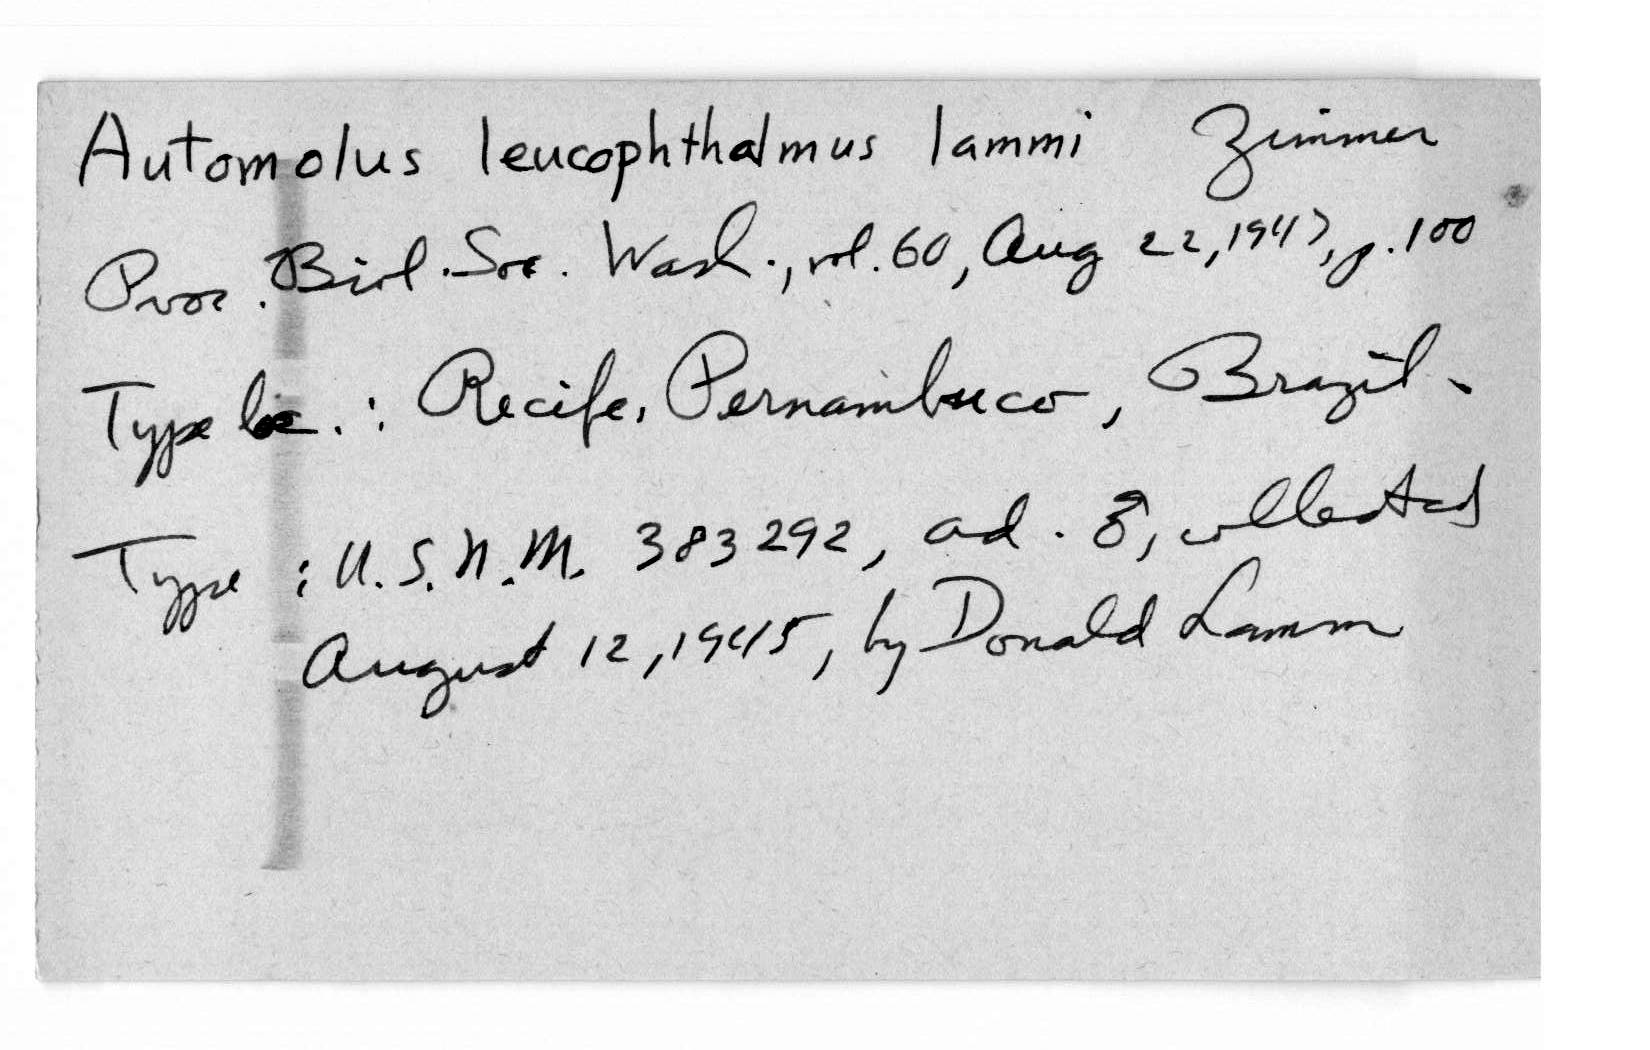 Automolus leucophthalmus lammi Zimmer
Proc. Biol. Soc. Wash., vol. 60, Aug 22, 1947, p. 100
Type loc. : Recife, Pernambuco, Brazil.
Type : U.S.N.M. 383292, ad. ♂, collected
August 12, 1945, by Donald Lamm